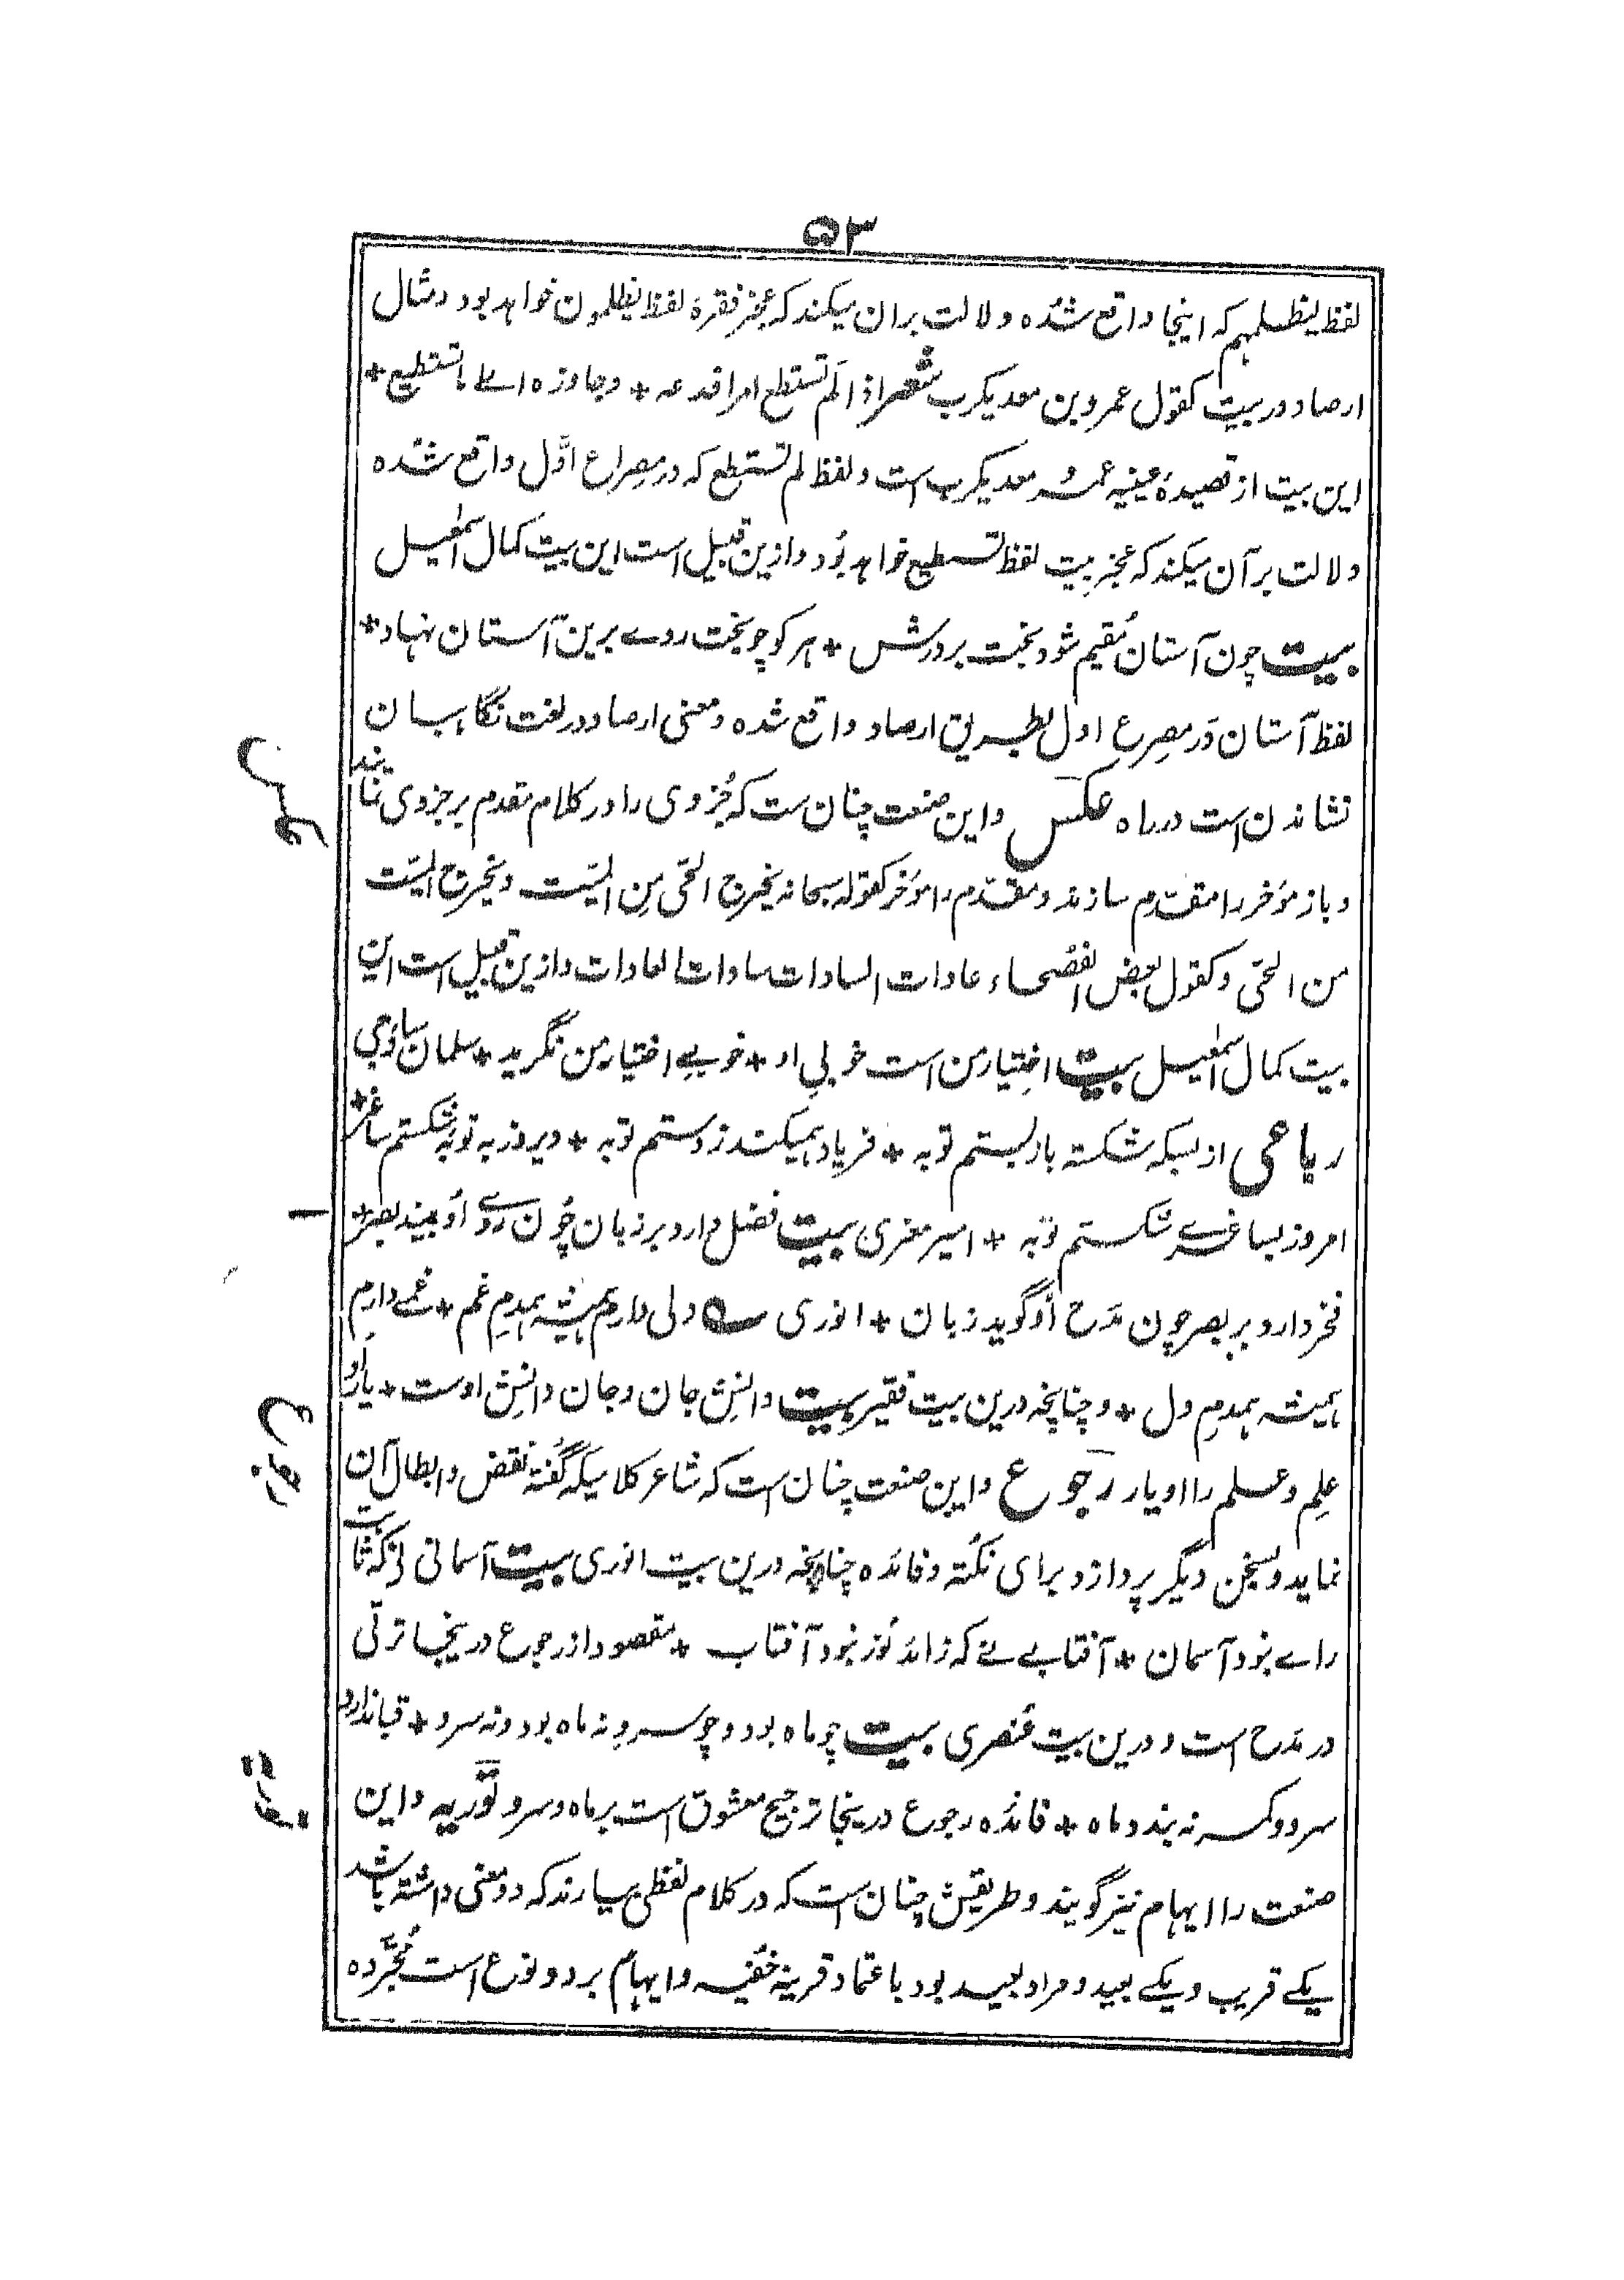 ۵۳
لفظ لیظلمہم کہ اینجا واقع شدہ دلالت بران میکند کہ عجز فقرۂ لفظ یظلمون خواہد بود و مثال
ارصاد در بیت کقول عمرو بن معدیکرب شعر اذا لَم تستطع امرا فدعہ + وجاوزہ الے ما تستطیع +
این بیت از قصیدۂ عینیہ عمرو معدیکرب است و لفظ لم تستطع کہ در مصراع اوّل واقع شدہ
دلالت بر آن میکند کہ عجز بیت لفظ تستطیع خواہد بُود و ازین قبیل است این بیت کمال اسمٰعیل
بیت چون آستان مُقیم شود بخت بر درش + ہر کو چو بخت روے برین آستان نہاد +
لفظ آستان دَر مصرعِ اول بطریق ارصاد واقع شدہ و معنی ارصاد در لغت نگاہبان
نشاندن است در راہ عکس و این صنعت چنان ست کہ جُزوی را در کلام مقدم بر جزوی نمایند
و باز مؤخر را مقدّم سازند و مقدّم را مؤخر کقولہ سبحانہ یخرج الحّی مِن المیّت و یخرج المیّت
من الحّی و کقول بعض الفُصحاء عادات السادات سادات العادات و ازین قبیل است این
بیت کمال اسمٰعیل بیت اختِیار من است خوبیِ او + خوبیِ اختیار من نگرید + سلمان ساوَجی
رباعی از بسکہ شکستہ باز بستم توبہ + فریاد ہمیکند ز دستم توبہ + دیروز بہ توبۂ شکستم ساغر +
امروز بساغرے شکستم توبہ + امیر معزی بیت فضل دارد بر زبان چُون رُوے اُو بیند بصر +
فخر دارد بر بصر چون مَدح اُو گوید زبان + انوری ے دلی دارم ہمیشہ ہمدمِ غم + غمے دارم
ہمیشہ ہمدمِ دل + و چنانچہ درین بیت فقیر بیت دانِش جان و جان دانِش اوست + یار او
علِم و عسلم را او یار رجوع و این صنعت چنان است کہ شاعر کلامیکہ گُفتہ نقض و ابطال آن
نماید و بسخن دیگر پردازد برای نکتہ و فائدہ چنانچہ درین بیت انوری بیت آسمانی نی کہ ثابت
راے نبود آسمان + آفتابے نے کہ زائد نُور نبود آفتاب + مقصود از رجوع درینجا ترقی
در مَدح است و درین بیت عُنصری بیت چو ماہ بود و چو سرو نہ ماہ بود و نہ سرو + قبا ندارد
سرو و کمر نہ بندد ماہ + فائدہ رجوع درینجا ترجیح معشوق است بر ماہ و سرو تَوریہ و این
صنعت را ایہام نیز گویند و طریقش چنان است کہ در کلام لفظی بیارند کہ دو معنی داشتہ باشد
یکے قریب و یکے بعید و مراد بعید بود باعتماد قرینۂ خفیّہ و ایہام بر دو نوع است مُجرّدہ
عکس
رجوع
توریہ